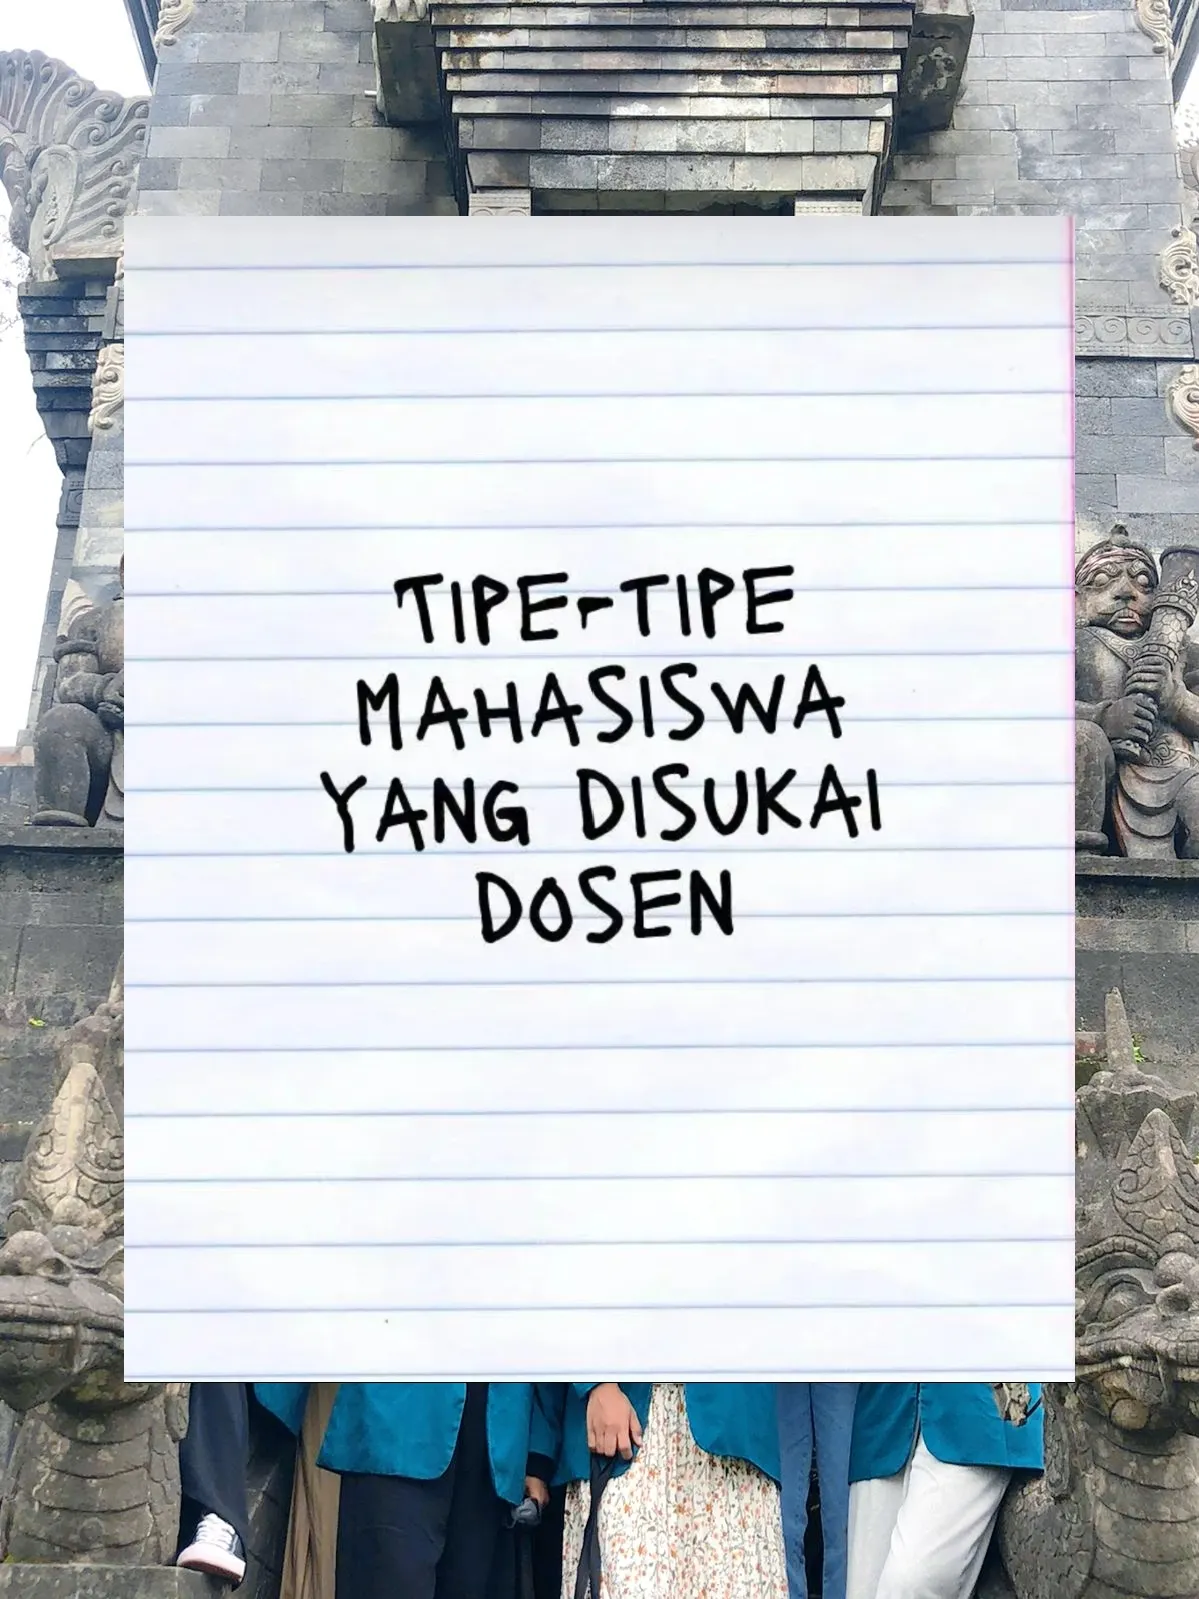 TIPE-TIPE
MAHASISWA
YANG DISUKAI
DOSEN